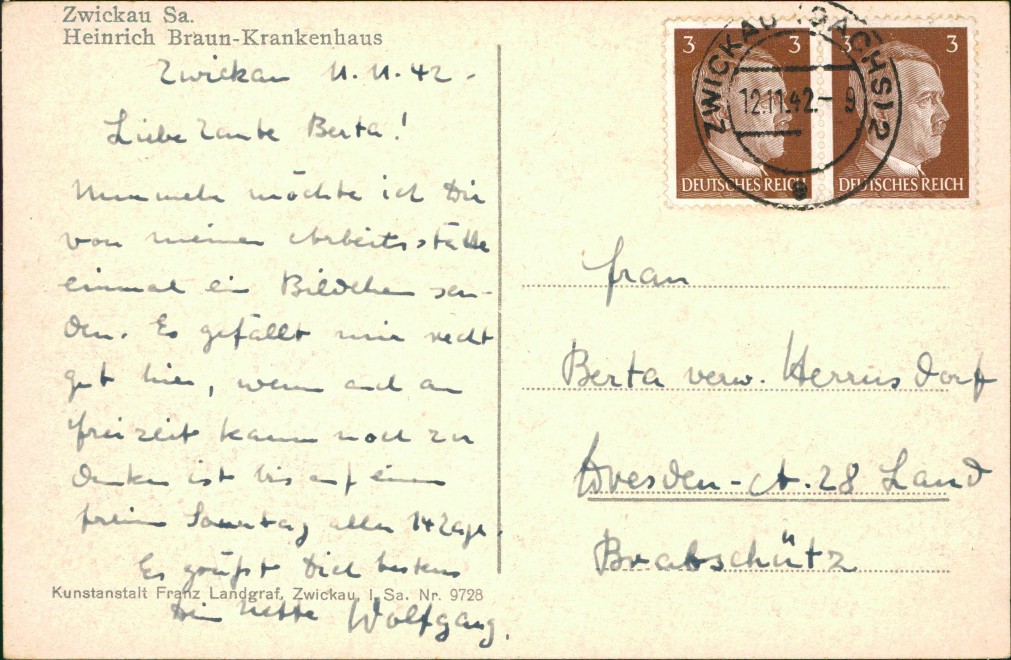 Zwickau Sa.
Heinrich Braun-Krankenhaus
Zwickau 11.11.42.
Liebe Tante Berta!
Nunmehr möchte ich Dir
von meiner Arbeitsstätte
einmal ein Bildchen sen-
den. Es gefällt mir recht
gut hier, wenn auch an
Freizeit kaum noch zu
denken ist bis auf einen
freien Sonntag aller 14 Tage.
Es grüßt Dich bestens
Dein Neffe Wolfgang.
Kunstanstalt Franz Landgraf, Zwickau, i. Sa. Nr. 9728
3 3 3 3
ZWICKAU (SACHS) 2
12.11.42.- 9
DEUTSCHES REICH DEUTSCHES REICH
Frau
Berta verw. Herrnsdorf
Dresden-A. 28 Land
Brabschütz